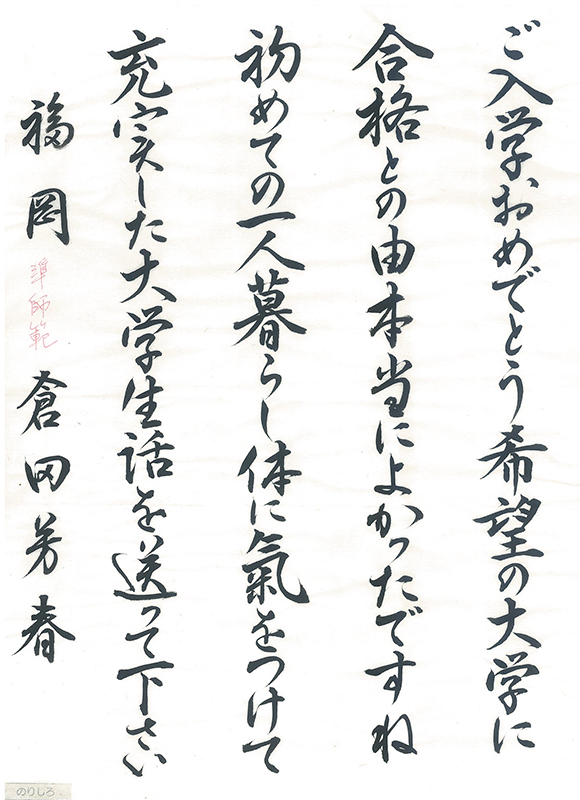 ご入学おめでとう希望の大学に
合格との由本当によかったですね
初めての一人暮らし体に氣をつけて
充実した大学生活を送って下さい
福岡 準師範 倉田芳春
のりしろ